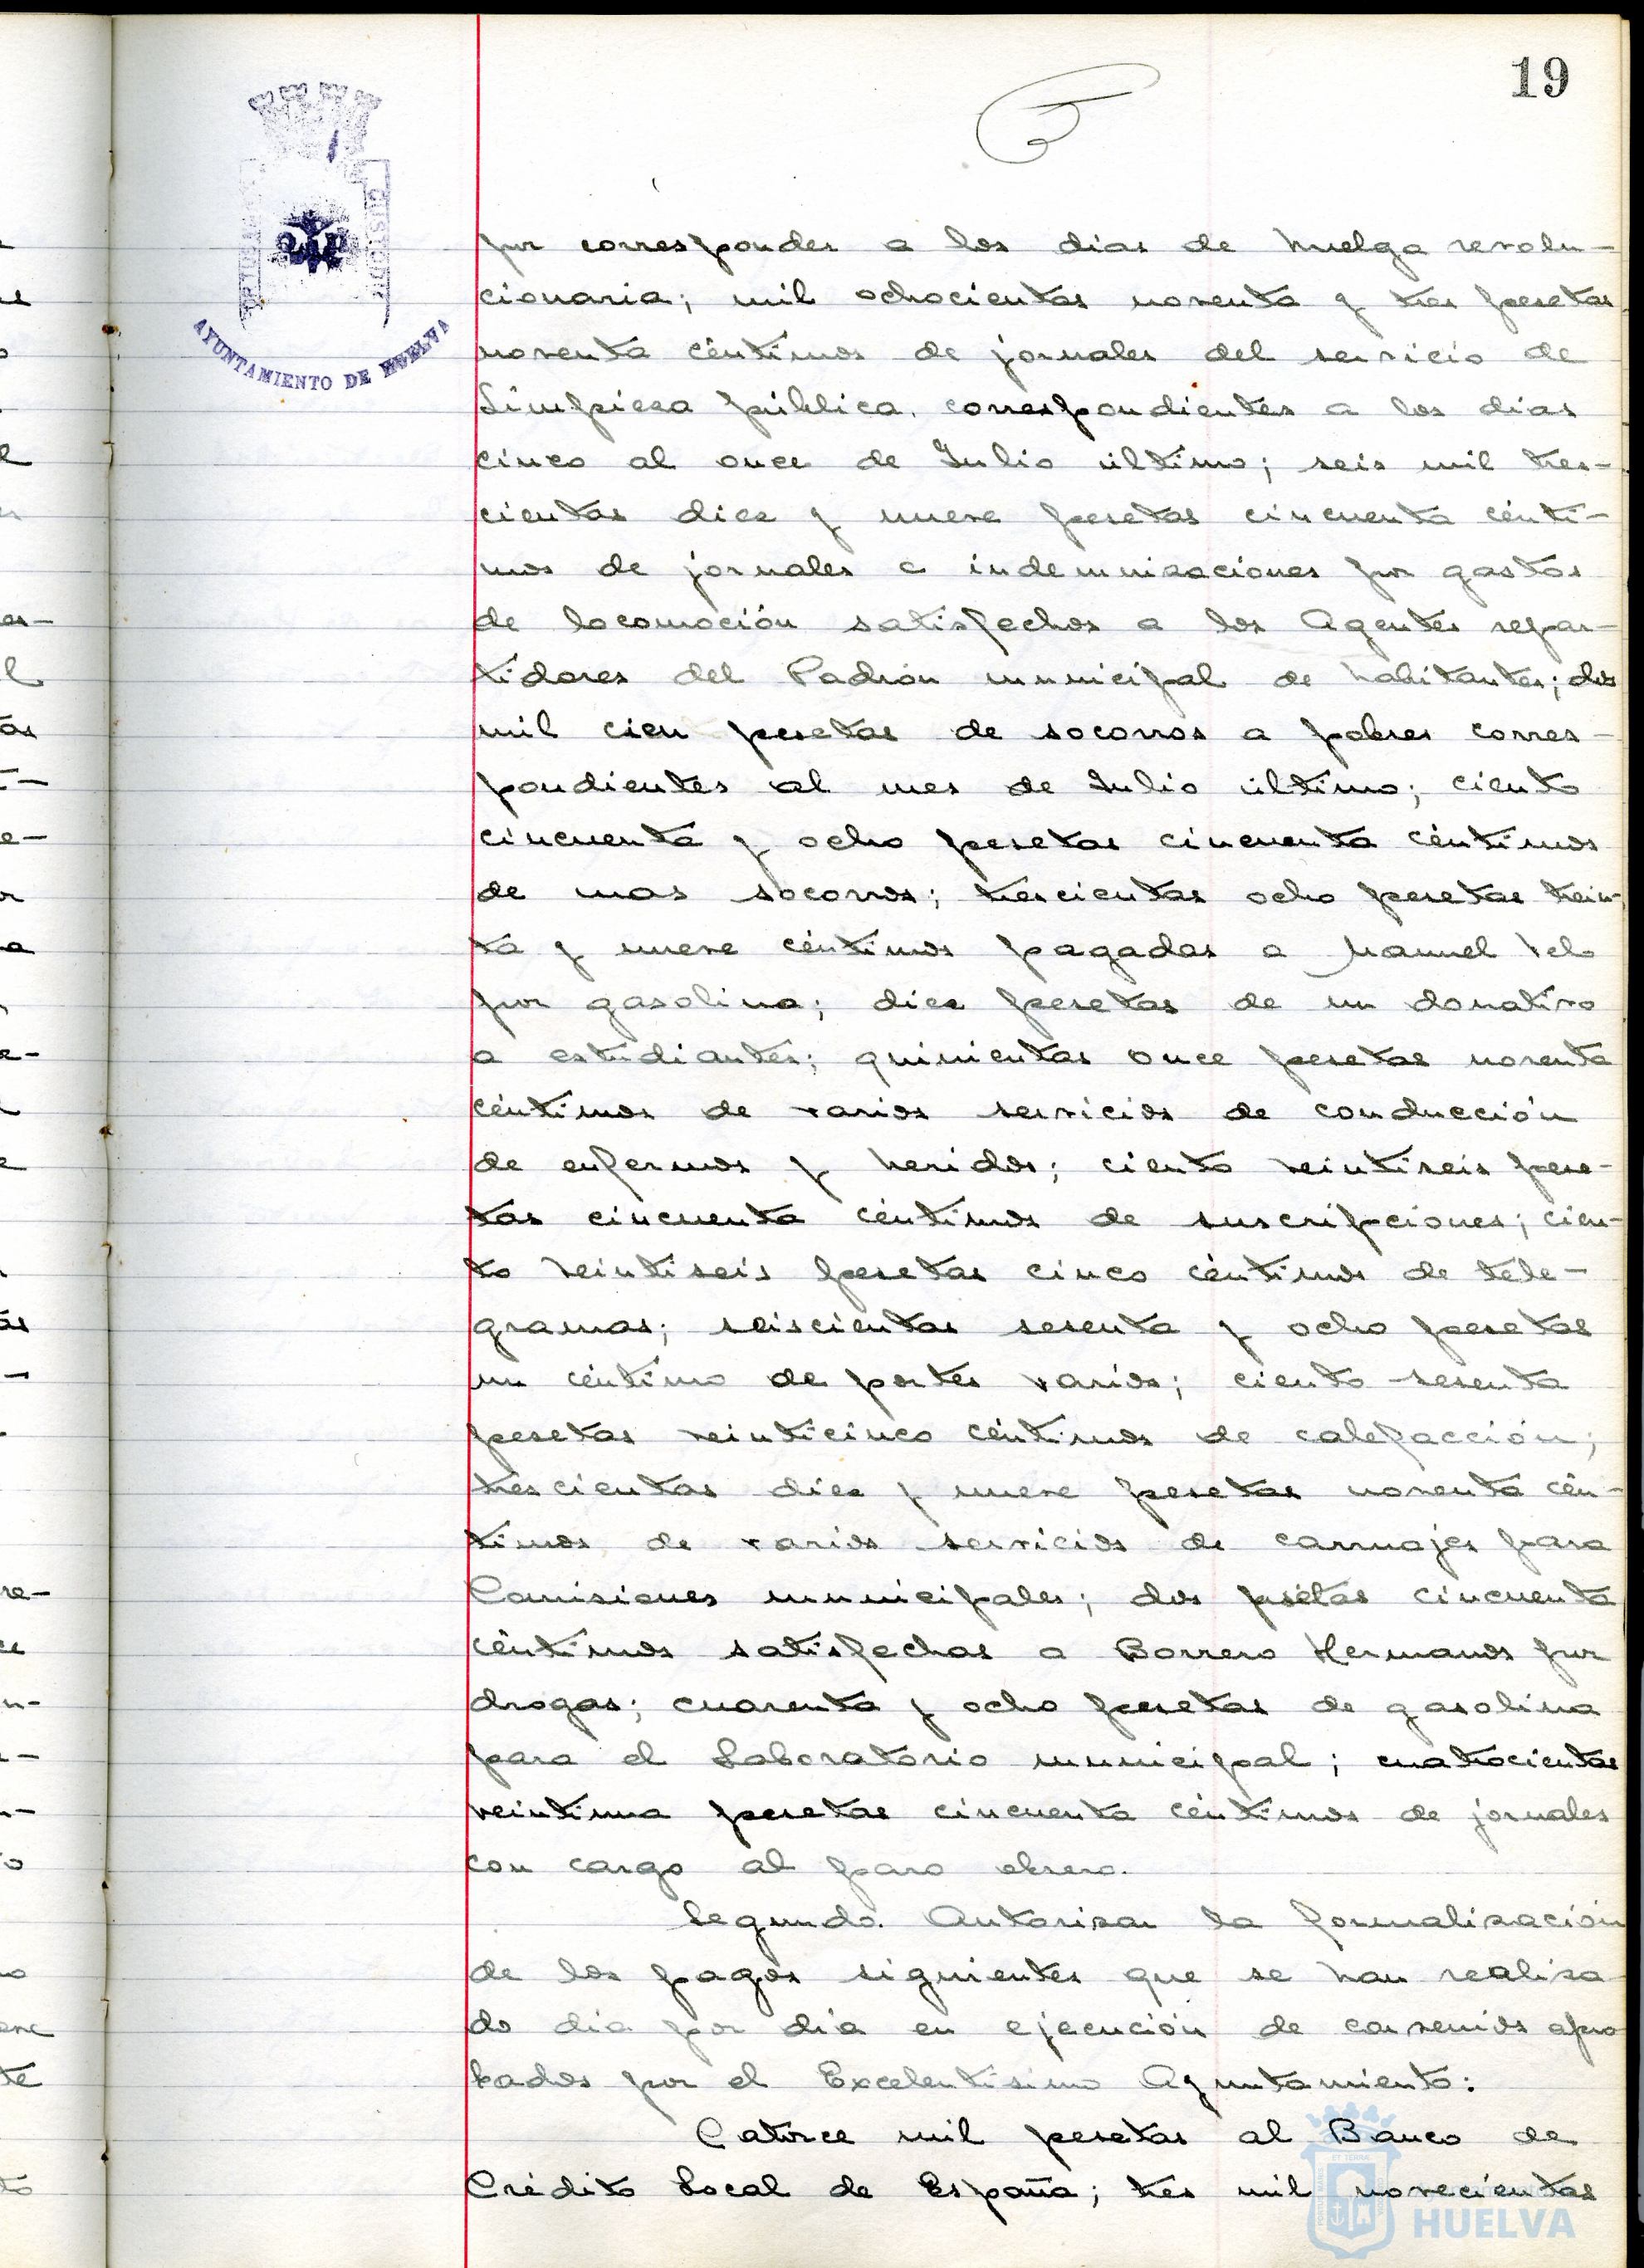 19
AYUNTAMIENTO DE HUELVA
por corresponder a los dias de huelga revolu-
cionaria; mil ochocientas noventa y tres pesetas
noventa céntimos de jornales del servicio de
Limpieza pública, correspondientes a los dias
cinco al once de Julio último; seis mil tres-
cientas diez y nueve pesetas cincuenta cénti-
mos de jornales e indemnizaciones por gastos
de locomoción satisfechos a los Agentes repar-
tidores del Padrón municipal de habitantes; dos
mil cien pesetas de socorros a pobres corres-
pondientes al mes de Julio último; ciento
cincuenta y ocho pesetas cincuenta céntimos
de mas socorros; trescientas ocho pesetas trein-
ta y nueve céntimos pagadas a Manuel Velo
por gasolina; diez pesetas de un donativo
a estudiantes; quinientas once pesetas noventa
céntimos de varios servicios de conducción
de enfermos y heridos; ciento veintiseis pese-
tas cincuenta céntimos de suscripciones; cien-
to veintiseis pesetas cinco céntimos de tele-
gramas; seiscientas sesenta y ocho pesetas
un céntimo de portes varios; ciento sesenta
pesetas veinticinco céntimos de calefacción;
trescientas diez y nueve pesetas noventa cén-
timos de varios servicios de carruajes para
Comisiones municipales; dos psetas cincuenta
céntimos satisfechas a Borrero Hermanos por
drogas; cuarenta y ocho pesetas de gasolina
para el Laboratorio municipal; cuatrocientas
veintiuna pesetas cincuenta céntimos de jornales
con cargo al paro obrero.
Segundo. Autorizar la formalización
de los pagos siguientes que se han realiza
do dia por dia en ejecución de convenios apro
bados por el Excelentísimo Ayuntamiento:
Catorce mil pesetas al Banco de
Crédito Local de España; tres mil novecientas
HUELVA